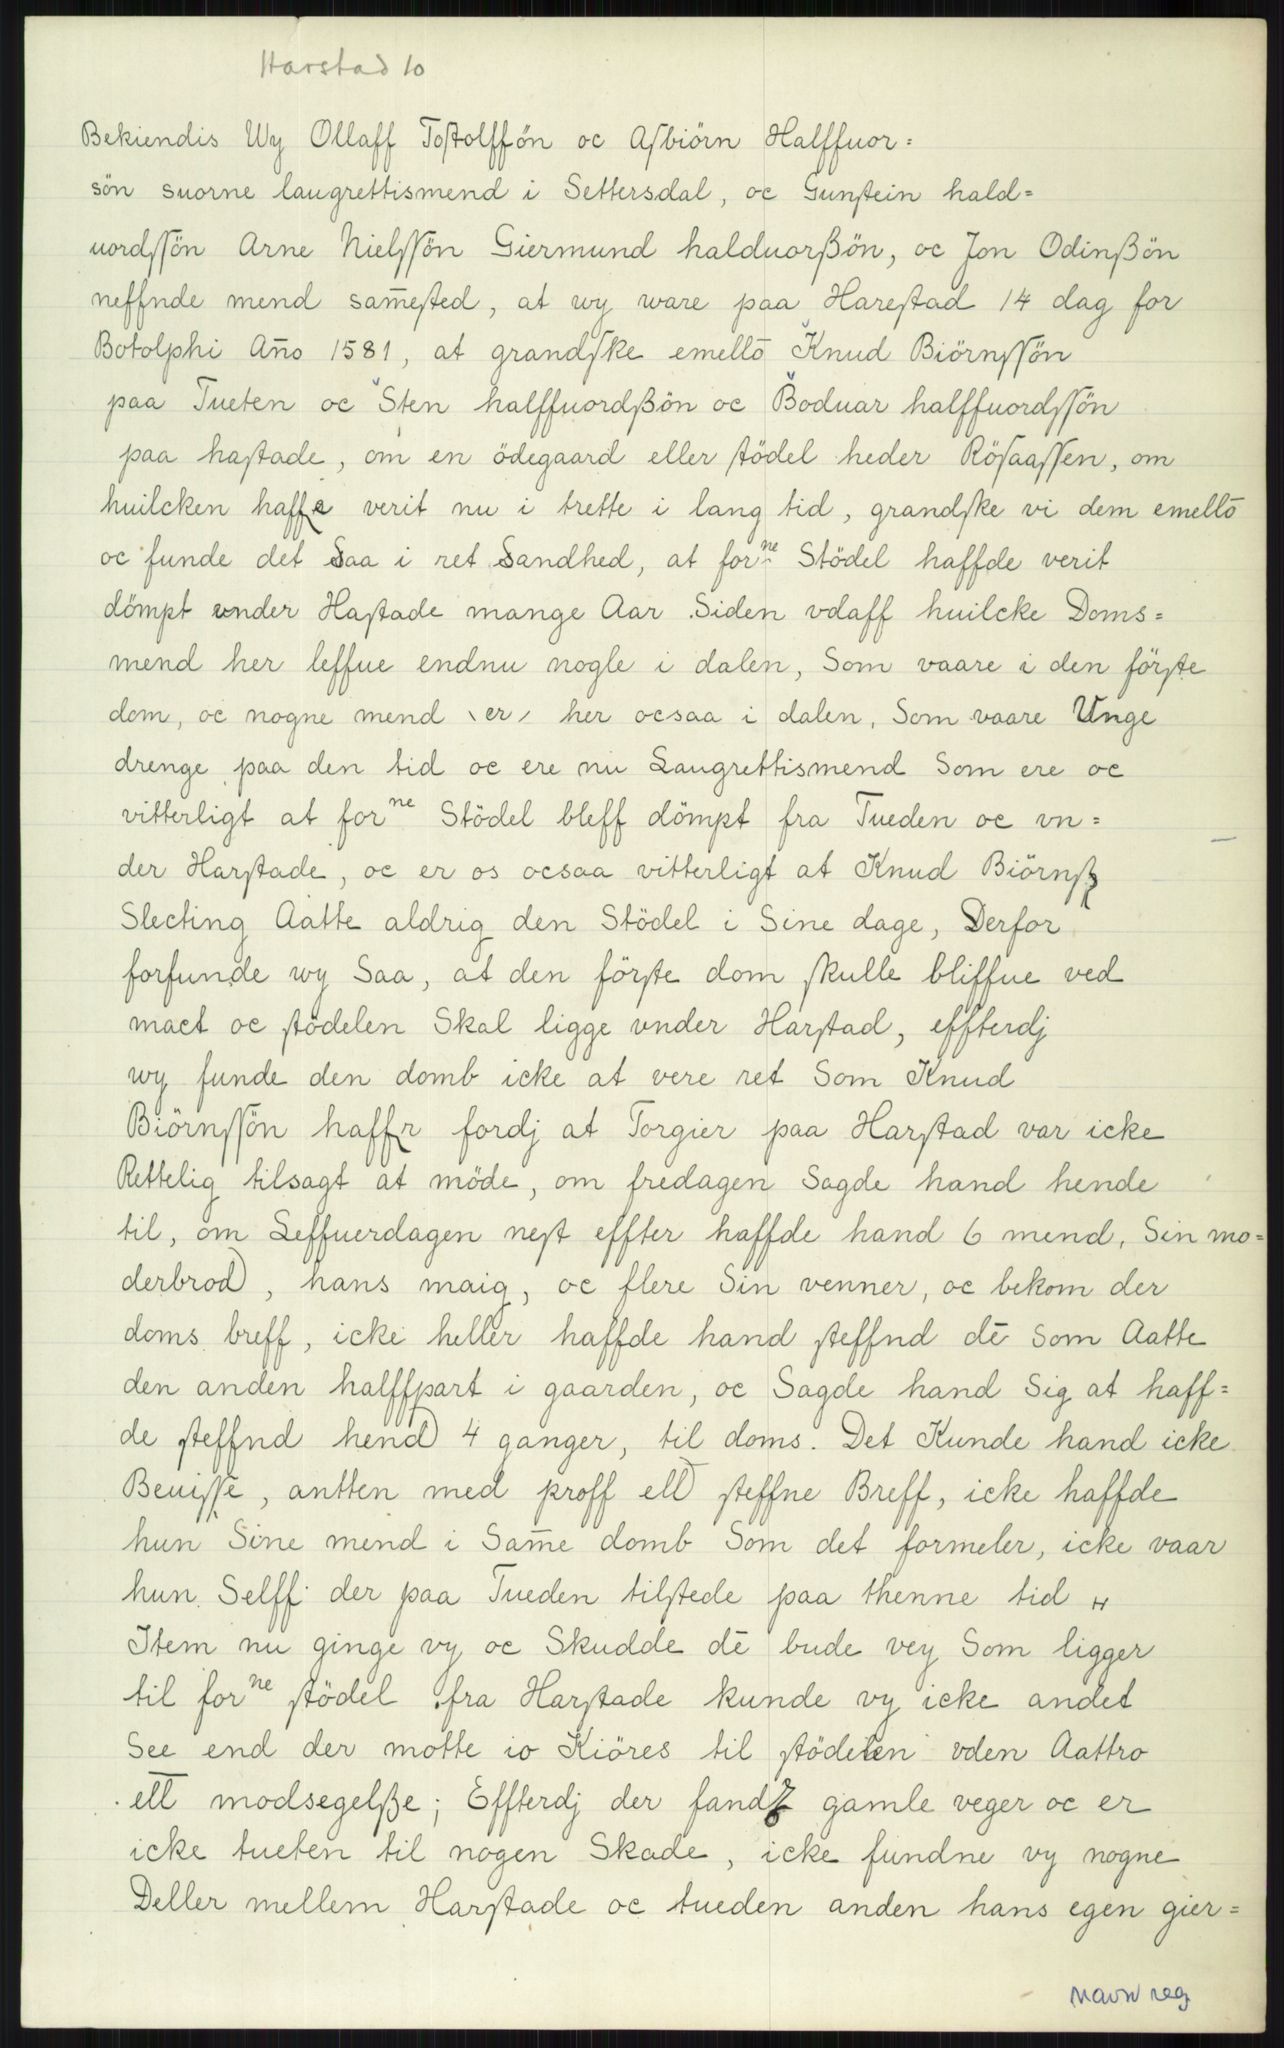 Harstad 10
Bekiendis Wy Ollaff Tostolffön oc Asbiörn Halffuor=
sön suorne laugrettismend i Settersdal, oc Gunstein hald=
uordssön Arne Nielssön Giermund halduorßön, oc Jon Odinßön
neffnde mend sam̄ested, at wy ware paa Harestad 14 dag for
Botolphi Año 1581, at grandske emellō Knud Biörnssön
paa Tueten oc Sten halffuordßön oc Boduar halffuordssön
paa hastade, om en ödegaard eller stödel heder Rösaassen, om
huilcken haffe verit nu i trette i lang tid, grandske vi dem emellō
oc funde det Saa i ret Sandhed, at forne Stödel haffde verit
dömpt vnder Hastade mange Aar Siden vdaff huilcke Doms=
mend her leffue endnu nogle i dalen, Som vaare i den förste
dom, oc nogne mend er her ocsaa i dalen, Som vaare Unge
drenge paa den tid oc ere nu Laugrettismend Som ere oc
vitterligt at forne Stödel bleff dömpt fra Tueden oc vn=
der Harstade, oc er os ocsaa vitterligt at Knud Biörns
Slecting Aatte aldrig den Stödel i Sine dage, Derfor
forfunde wy Saa, at den förste dom skulle bliffue ved
mact oc stödelen Skal ligge vnder Harstad, effterdj
wy funde den domb icke at vere ret Som Knud
Biörnssön haffr fordj at Torgier paa Harstad var icke
Rettelig tilsagt at möde, om fredagen Sagde hand hende
til, om Leffuerdagen nest effter haffde hand 6 mend, Sin mo=
derbrod, hans maig, oc flere Sin venner, oc bekom der
doms breff, icke heller haffde hand steffnd dē Som Aatte
den anden halffpart i gaarden, oc Sagde hand Sig at haff=
de steffnd hend 4 ganger, til doms. Det Kunde hand icke
Beuisse, antten med proff ell steffne Breff, icke haffde
hun Sine mend i Sam̄e domb Som det formeler, icke vaar
hun Selff der paa Tueden tilstede paa thenne tid
Item nu ginge vy oc Skudde dē bude vey Som ligger
til forne stödel fra Harstade kunde vy icke andet
See end der motte io Kiöres til stödelen vden Aattro
ell modsegelße; Effterdj der fandz gamle veger oc er
icke tueten til nogen Skade, icke fundne vy nogne
Deller mellem Harstade oc tueden anden hans egen gier=
navn reg